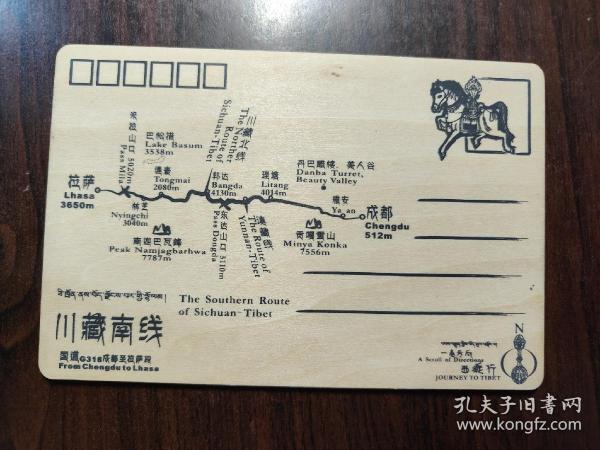 米拉山口 5020m
Pass Mila
巴松措
Lake Basum
3538m
The Norther
Route of
Sichuan-Tibet
拉萨
Lhasa
3650m
通麦
Tongmai
2080m
邦达
Bangda
4130m
理塘
Litang
4014m
丹巴碉楼、美人谷
Danba Turret,
Beauty Valley
林芝
Nyingchi
3040m
雅安
Ya an
成都
Chengdu
512m
南迦巴瓦峰
Peak Namjagbarwa
7787m
东达山口 5110m
Pass Dongda
滇藏线
The Route of
Yunnan-Tibet
贡嘎雪山
Minya Konka
7556m
The Southern Route
of Sichuan-Tibet
川藏南线
国道G318成都至拉萨段
From Chengdu to Lhasa
N
一卷方向
A Scroll of Directions
西藏行
JOURNEY TO TIBET
孔夫子旧书网
www.kongfz.com